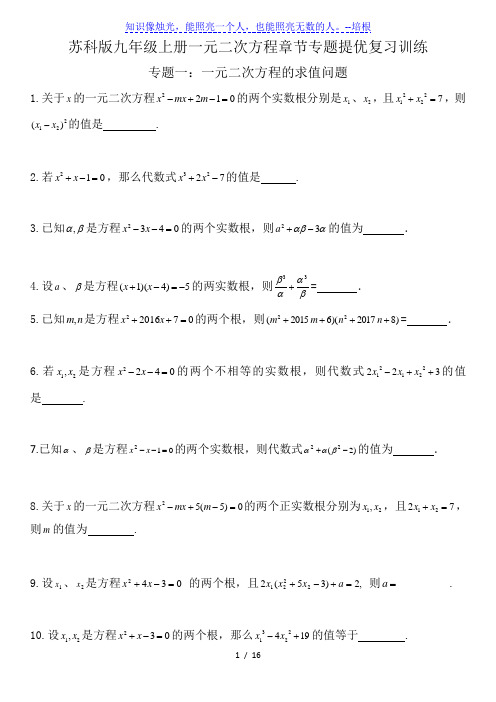 知识像烛光，能照亮一个人，也能照亮无数的人。--培根
苏科版九年级上册一元二次方程章节专题提优复习训练
专题一：一元二次方程的求值问题
1.关于x的一元二次方程x²－mx＋2m－1＝0的两个实数根分别是x₁、x₂，且x₁²＋x₂²＝7，则
(x₁－x₂)²的值是 .
2.若x²＋x－1＝0，那么代数式x³＋2x²－7的值是 .
3.已知α,β是方程x²－3x－4＝0的两个实数根，则a²＋αβ－3α的值为 .
4.设a、β是方程(x＋1)(x－4)＝－5的两实数根，则β³/α＋α³/β＝ .
5.已知m,n是方程x²＋2016x＋7＝0的两个根，则(m²＋2015m＋6)(n²＋2017n＋8)＝ .
6.若x₁,x₂是方程x²－2x－4＝0的两个不相等的实数根，则代数式2x₁²－2x₁＋x₂²＋3的值
是 .
7.已知α、β是方程x²－x－1＝0的两个实数根，则代数式α²＋α(β²－2)的值为 .
8.关于x的一元二次方程x²－mx＋5(m－5)＝0的两个正实数根分别为x₁,x₂，且2x₁＋x₂＝7，
则m的值为 .
9.设x₁、x₂是方程x²＋4x－3＝0 的两个根，且2x₁(x₂²＋5x₂－3)＋a＝2，则a＝ .
10.设x₁,x₂是方程x²＋x－3＝0的两个根，那么x₁³－4x₂²＋19的值等于 .
1 / 16